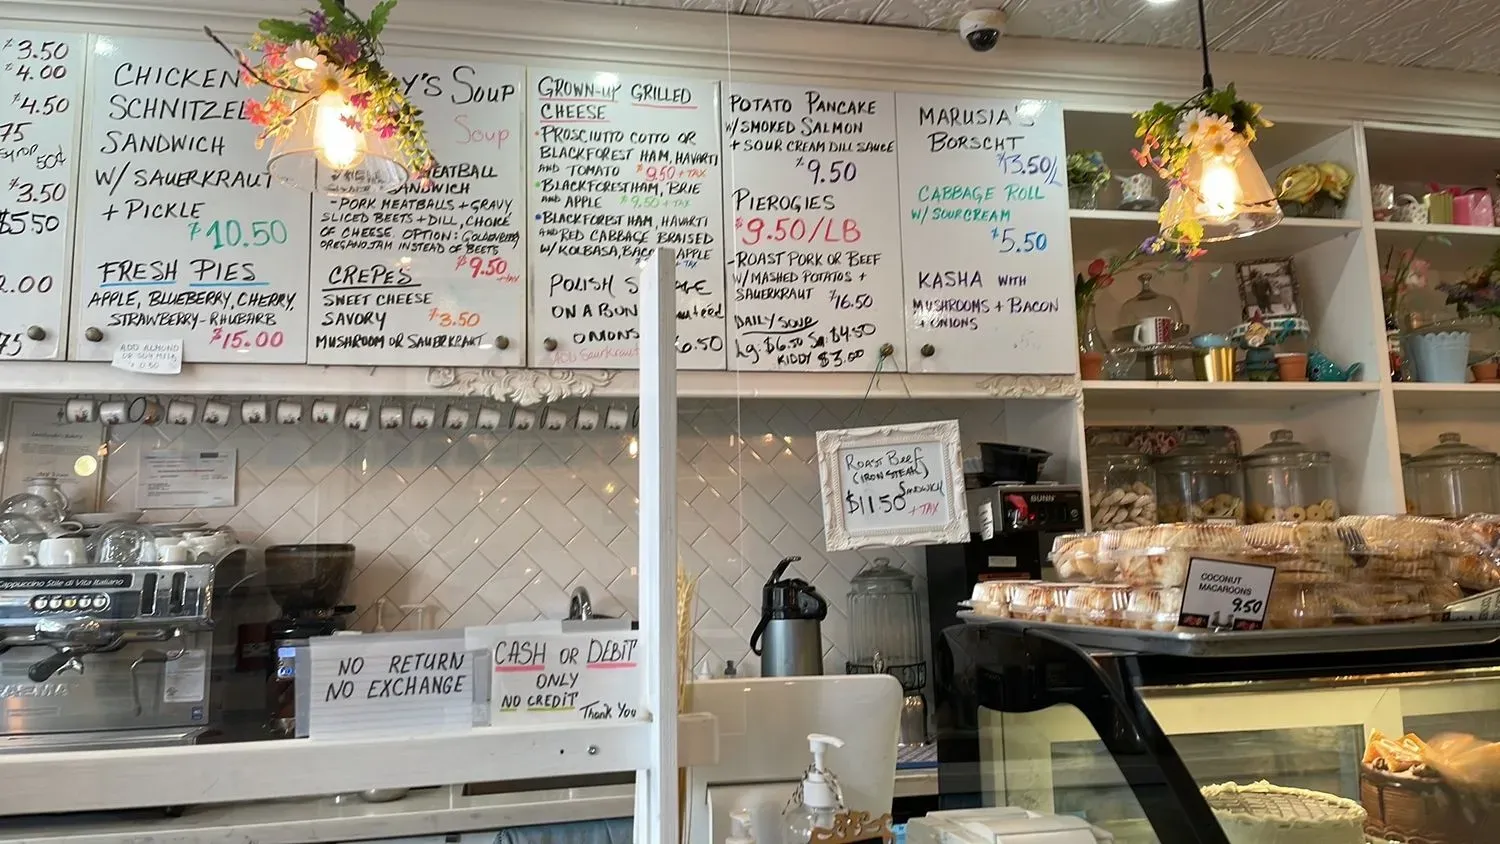 3.50
4.00
4.50
75
50¢
3.50
$5.50
2.00
75
CHICKEN
SCHNITZEL
SANDWICH
W/ SAUERKRAUT
+ PICKLE
10.50
FRESH PIES
APPLE, BLUEBERRY, CHERRY,
STRAWBERRY-RHUBARB
15.00
ADD ALMOND
OR SOY MILK
0.50
Y'S SOUP
Soup
MEATBALL
SANDWICH
-PORK MEATBALLS + GRAVY
SLICED BEETS + DILL, CHOICE
OF CHEESE. OPTION: GOLDENBERRY
OREGANO JAM INSTEAD OF BEETS
9.50 +TAX
CREPES
SWEET CHEESE
SAVORY 3.50
MUSHROOM OR SAUERKRAUT
GROWN-UP GRILLED
CHEESE
PROSCIUTTO COTTO OR
BLACKFOREST HAM, HAVARTI
AND TOMATO 9.50 + TAX
BLACKFOREST HAM, BRIE
AND APPLE 9.50 + TAX
BLACKFOREST HAM, HAVARTI
AND RED CABBAGE BRAISED
W/ KOLBASA, BACON APPLE
+ TAX
POLISH
ON A BUN
ONIONS 6.50
ADD Sauerkraut
POTATO PANCAKE
W/ SMOKED SALMON
+ SOUR CREAM DILL SAUCE
9.50
PIEROGIES
9.50/LB
-ROAST PORK OR BEEF
W/ MASHED POTATOS +
SAUERKRAUT 16.50
DAILY SOUP
Lg: $6.50 Sm: $4.50
KIDDY $3.50
MARUSIA'S
BORSCHT
13.50/L
CABBAGE ROLL
W/ SOUR CREAM
5.50
KASHA WITH
MUSHROOMS + BACON
+ ONIONS
ROAST BEEF
(IRON STEAK)
SANDWICH
$11.50 + TAX
BUNN
Cappuccino Stile di Vita Italiano
NO RETURN
NO EXCHANGE
CASH OR DEBIT
ONLY
NO CREDIT
Thank You
COCONUT
MACAROONS
9.50